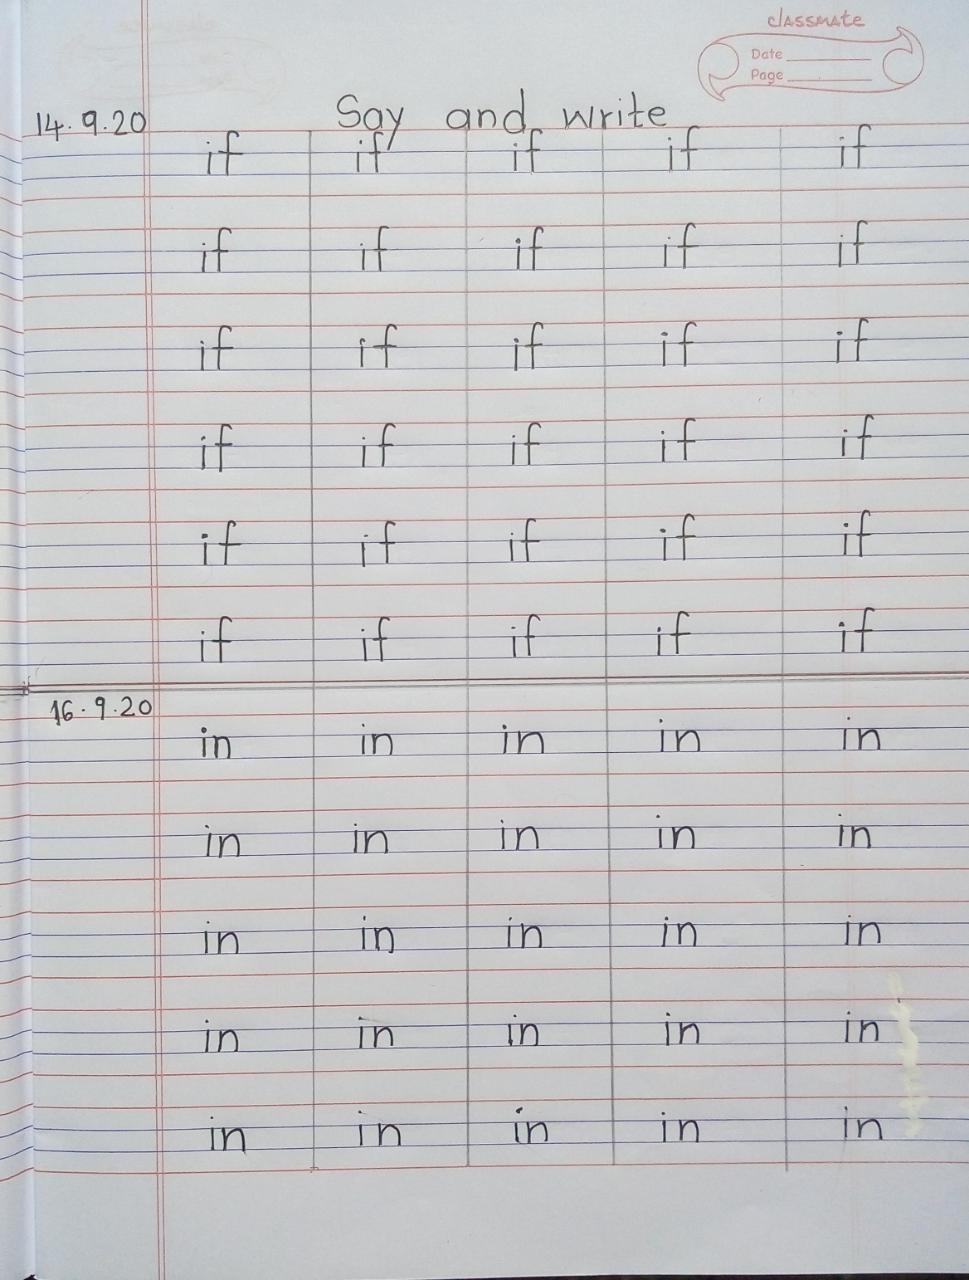 classmate
Date
Page
14.9.20 Say and write
if if if if if
if if if if if
if if if if if
if if if if if
if if if if if
if if if if if
16.9.20
in in in in in
in in in in in
in in in in in
in in in in in
in in in in in